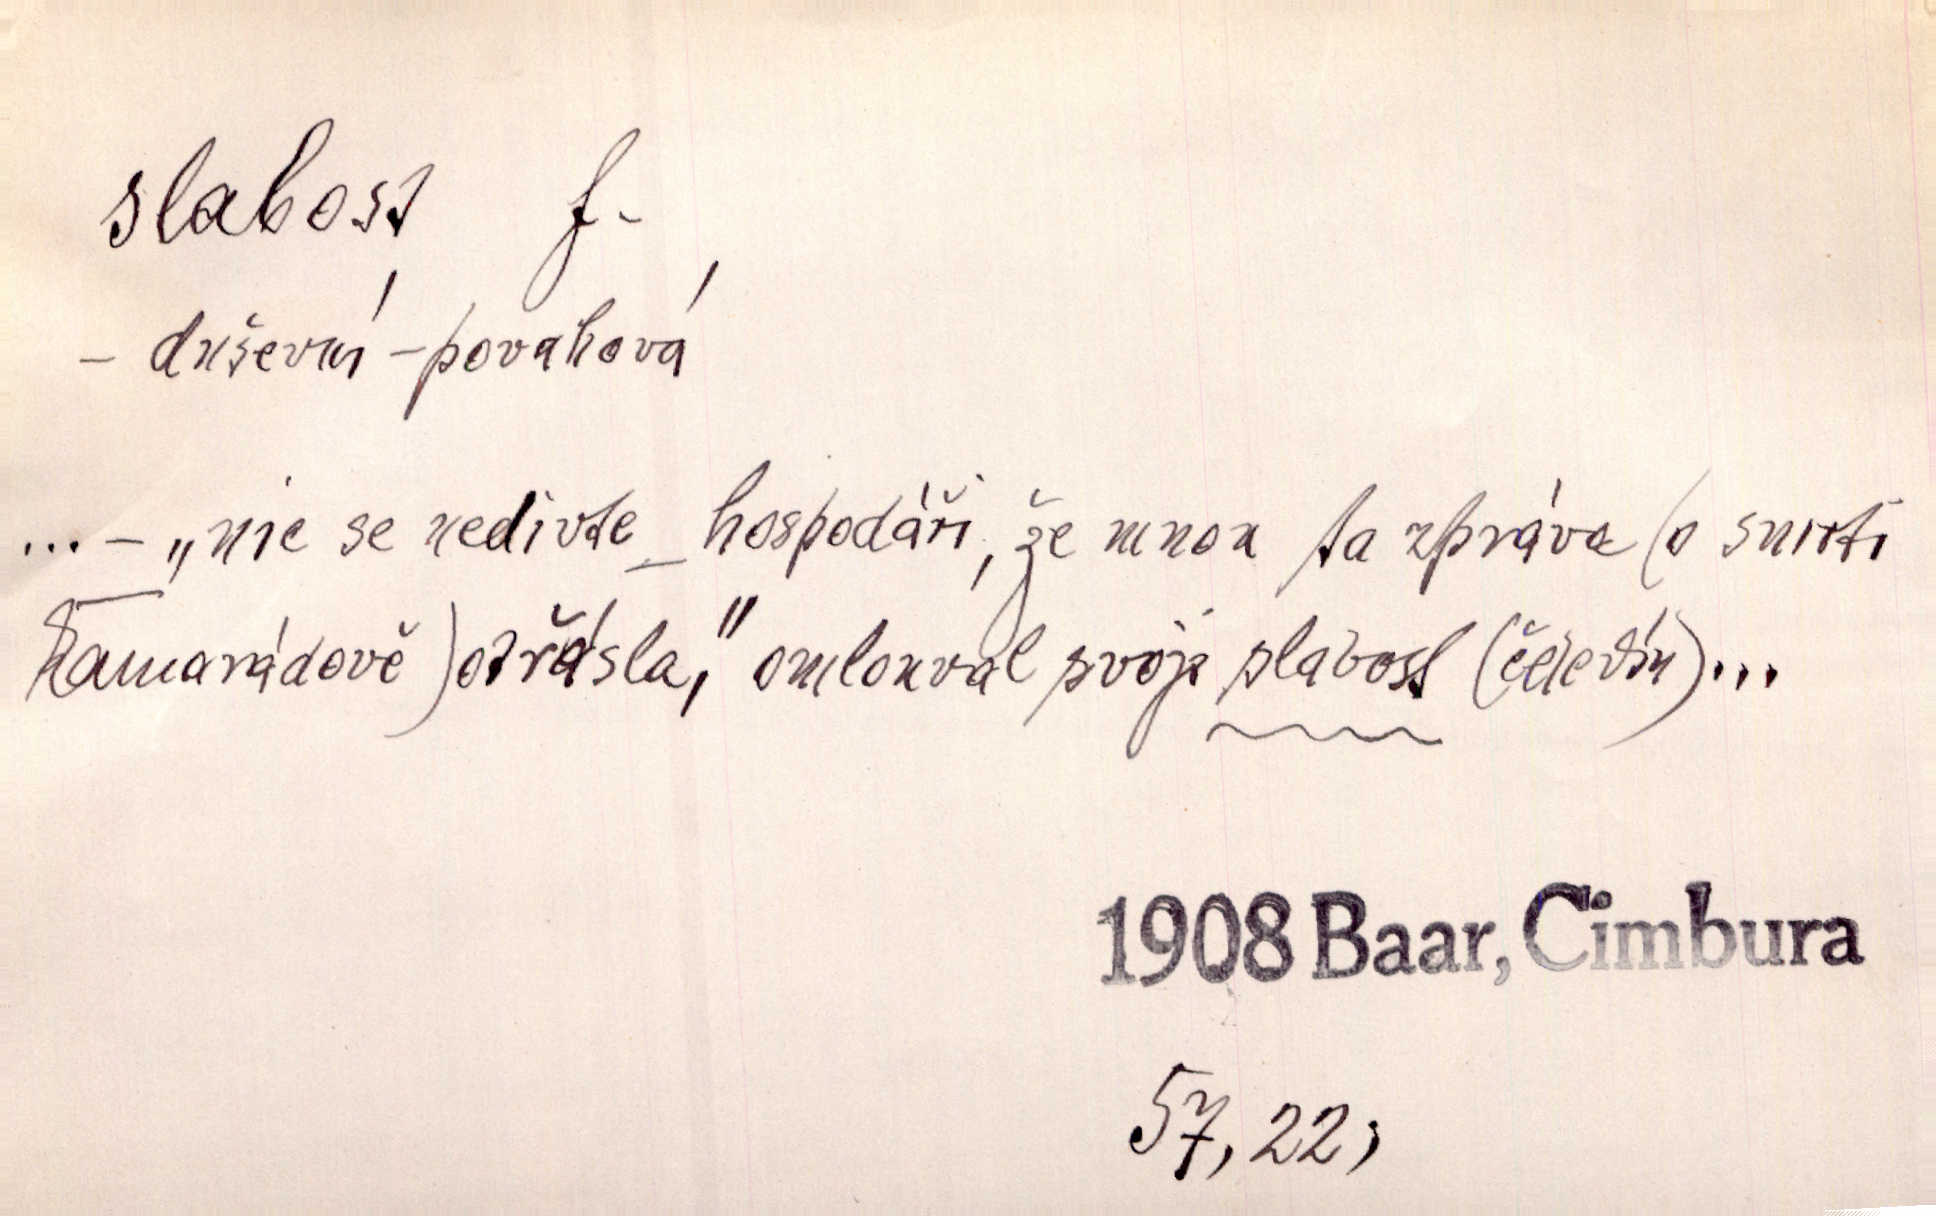 slabost f.
- duševní - povahová
... - „nic se nedivte _ hospodáři, že mnou ta zpráva (o smrti
kamarádově) otřásla," omlouval svoji slabost (čeledín)...
1908 Baar, Cimbura
57, 22;